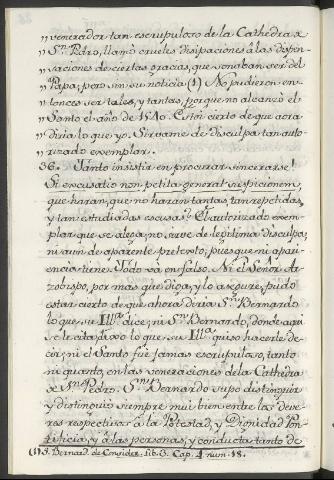 „venerador tan escrupuloso de la Cathedra de
„Sn Pedro, llamò crueles disipaciones à las dispen-
„saciones de ciertas gracias, que sonaban ser del
„Papa; pero sin su noticia (1) No pudieron en-
„tonces ser tales, y tantas, porque no alcanzò el
„Santo el año de 1710. Estoi cierto de que aora
„diria lo que yo. Sirvame de disculpa tan auto-
„rizado exemplar.
36. Tànto insistir en procurar sincerarse!
Si excusatio non petita generat suspicionem,
que haran, que no haràn tantas, tan repetidas,
y tan estudiadas escusas? El autorizado exem-
plar que se alega, no sirve de legitima disculpa;
ni aun de aparente pretexto; pues que ni apari-
encia tiene. Todo và en falso. Ni el Señor Ar-
zobispo, por mas que diga, y lo asegure, pudo
estar cierto de que ahora diria Sn Bernardo
lo que su Illma dice; ni Sn Bernardo, donde aqui
se le cita, dixo lo que su Illma quiso hacerle de-
cir; ni el Santo fuè jamas escrupuloso, tanto
ni quanto, en las veneraciones de la Cathedra
de Sn Pedro. Sn Bernardo supo distinguir
y distinguiò siempre mui bien entre los debe-
res respectivos à la Potestad, y Dignidad Pon-
tificia; y à las personas, y conducta tanto de
(1) S. Bernard. de Consider. Lib. 3. Cap. 4 num. 18.